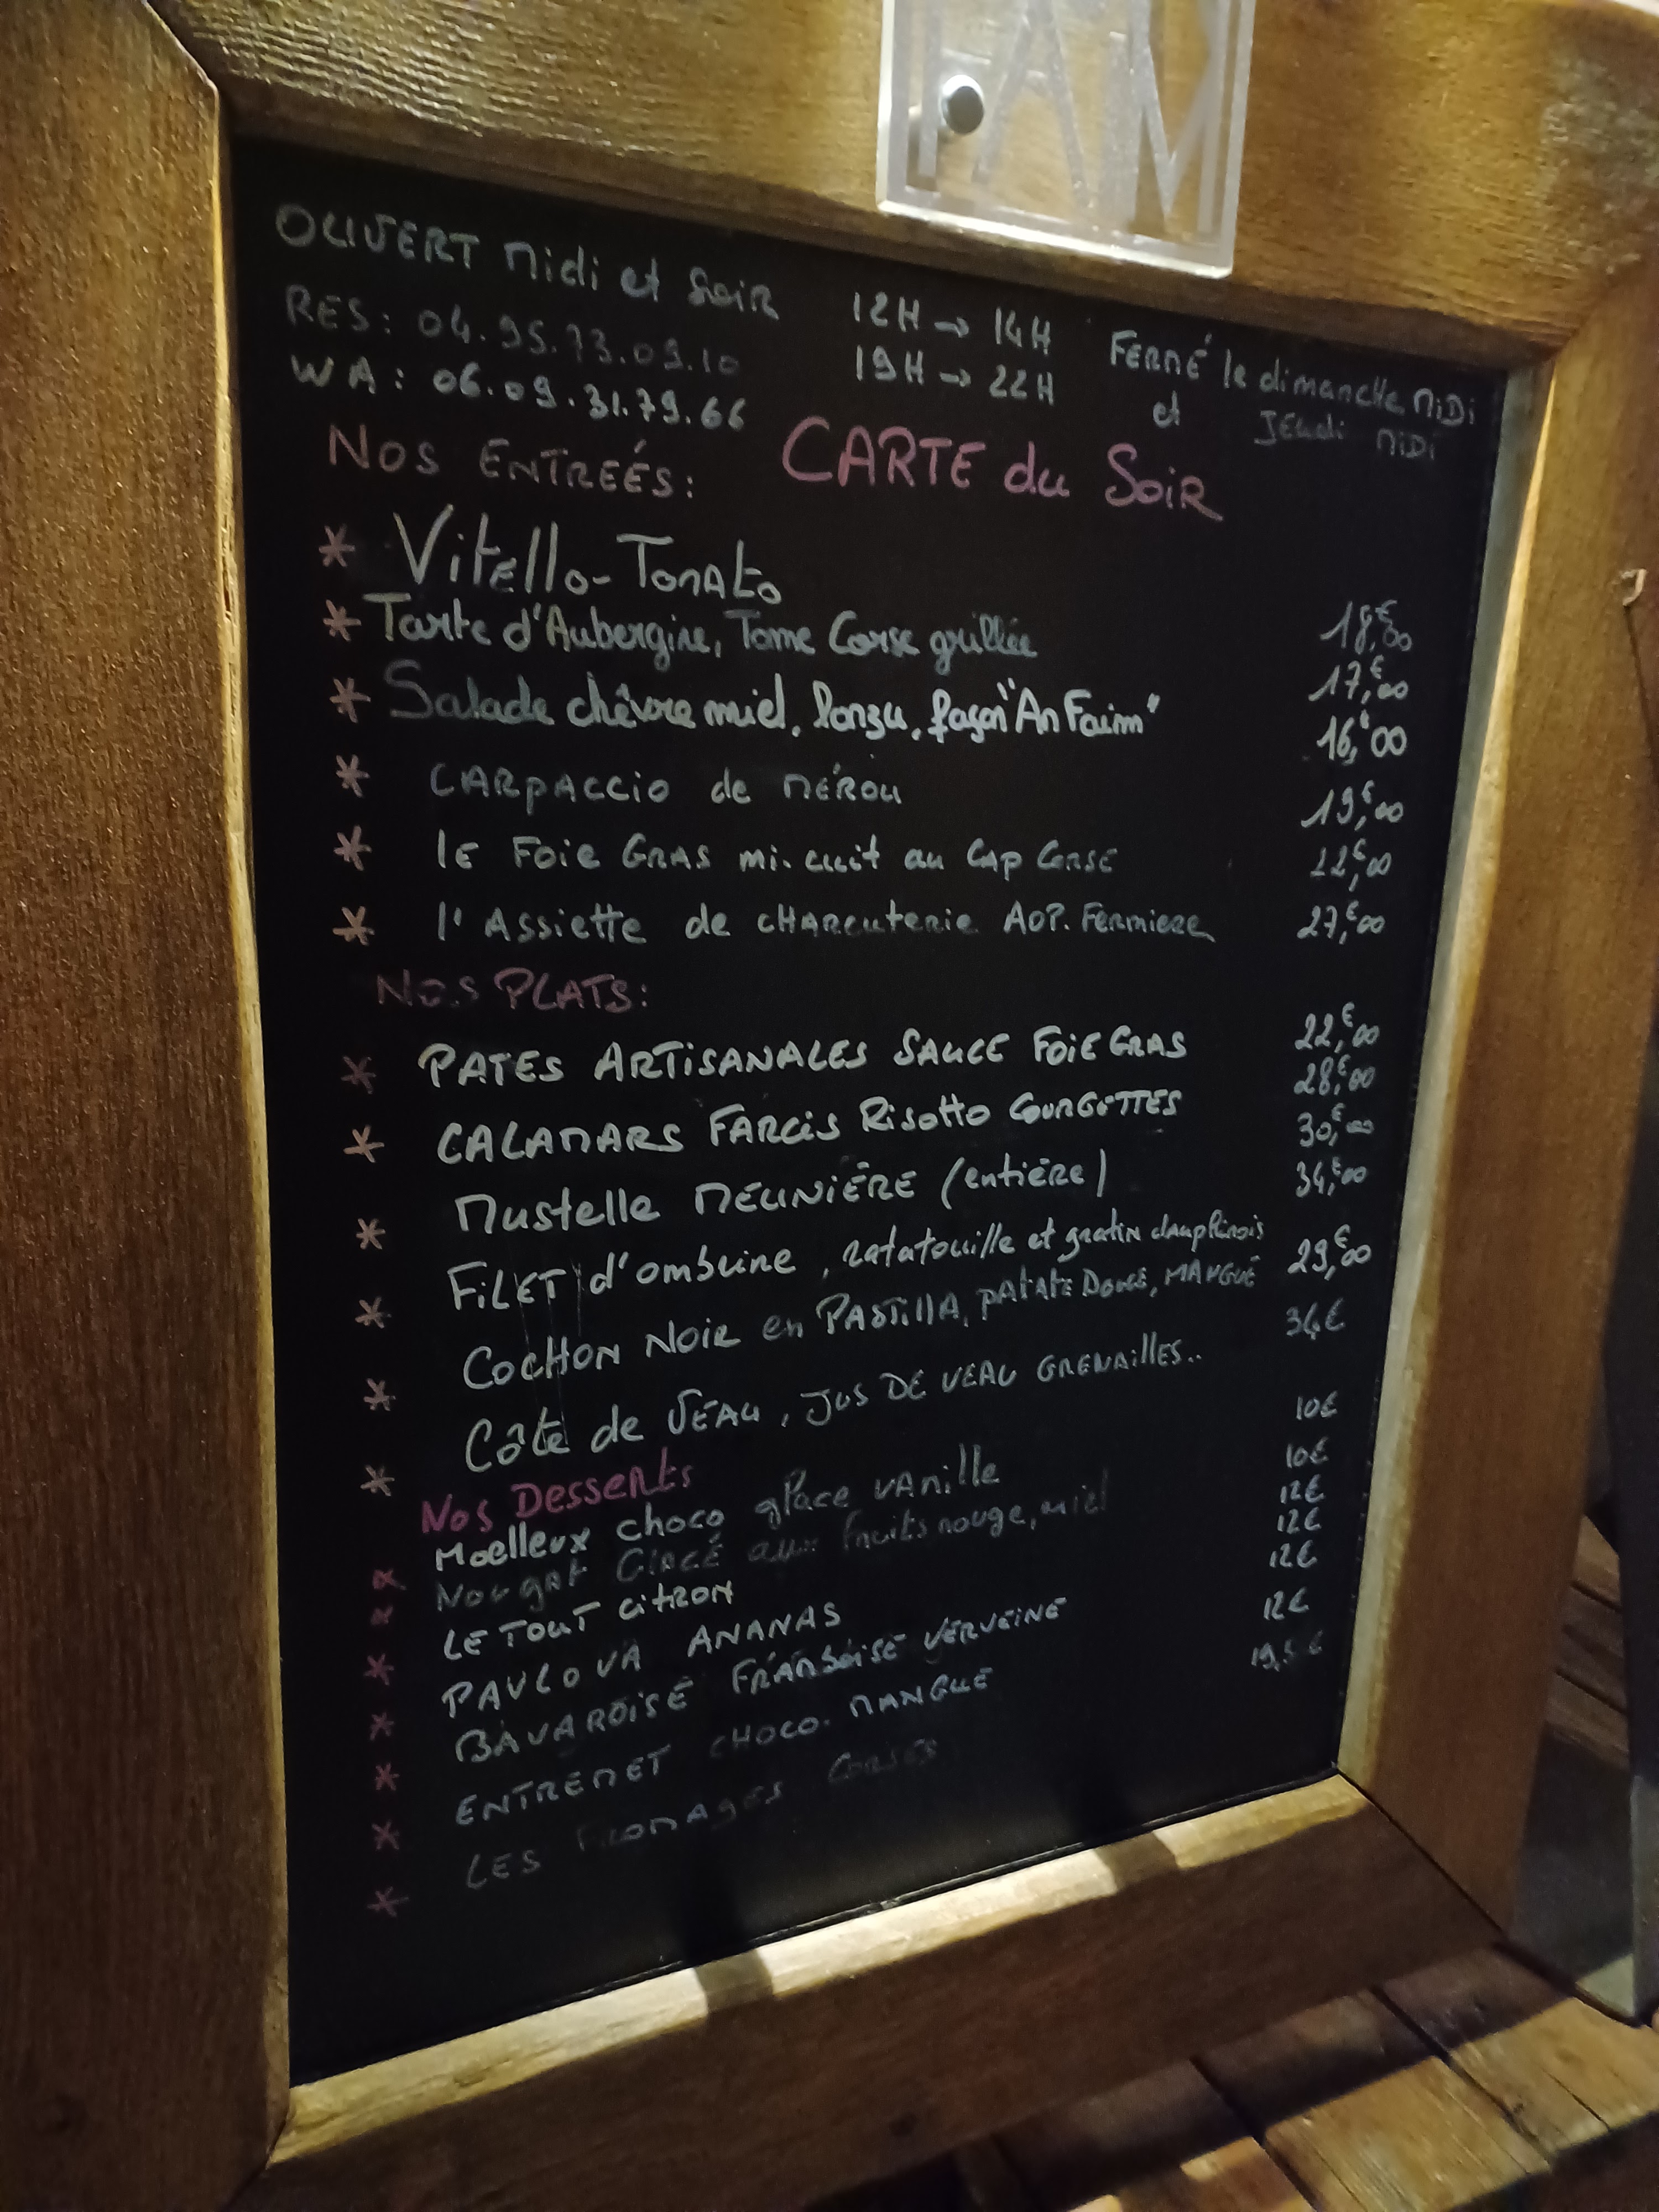 FAM
OUVERT midi et soir 12H → 14H Fermé le dimanche midi
RES: 04.95.73.09.10 19H → 22H et Jeudi midi
WA: 06.09.31.79.66
NOS ENTREÉS: CARTE du SoiR
* Vitello-Tonato 18,€00
* Tarte d'Aubergine, Tome Corse grillée 17,€00
* Salade chèvre miel, lonzu, façon "An Faim" 16,€00
* CARpaccio de MÉROU 19,€00
* lE Foie GRAS mi-cuit au Cap Corse 22,€00
* l'Assiette de cHARcuterie AOP. Fermiere 27,€00
NOS PLATS:
* PATES ARTiSANALES SAUCE FOiE GRAS 22,€00
* CALAMARS FARCiS RisoTTO COURGETTES 28,€00
* Mustelle MEUNIÈRE (entière) 30,€00
* FiLET d'ombrine, ratatouille et gratin dauphinois 34,€00
* COCHON NOIR en PASTillA, PATATE DOUCE, MANGUE 29,€00
* Côte de VEAU, JUS DE VEAU GRENAiLLES.. 34€
Nos Desserts
* Moelleux choco glace vanille 10€
* Nougat Glacé aux fruits rouge, miel 10€
* LE TOUT CiTRON 12€
* PAVLOVA ANANAS 12€
* BAVAROISE FRAMBOiSE VERVEINE 12€
* ENTREMET CHOCO-MANGUE 12€
* LES FROMAGES CORSES 19,5€